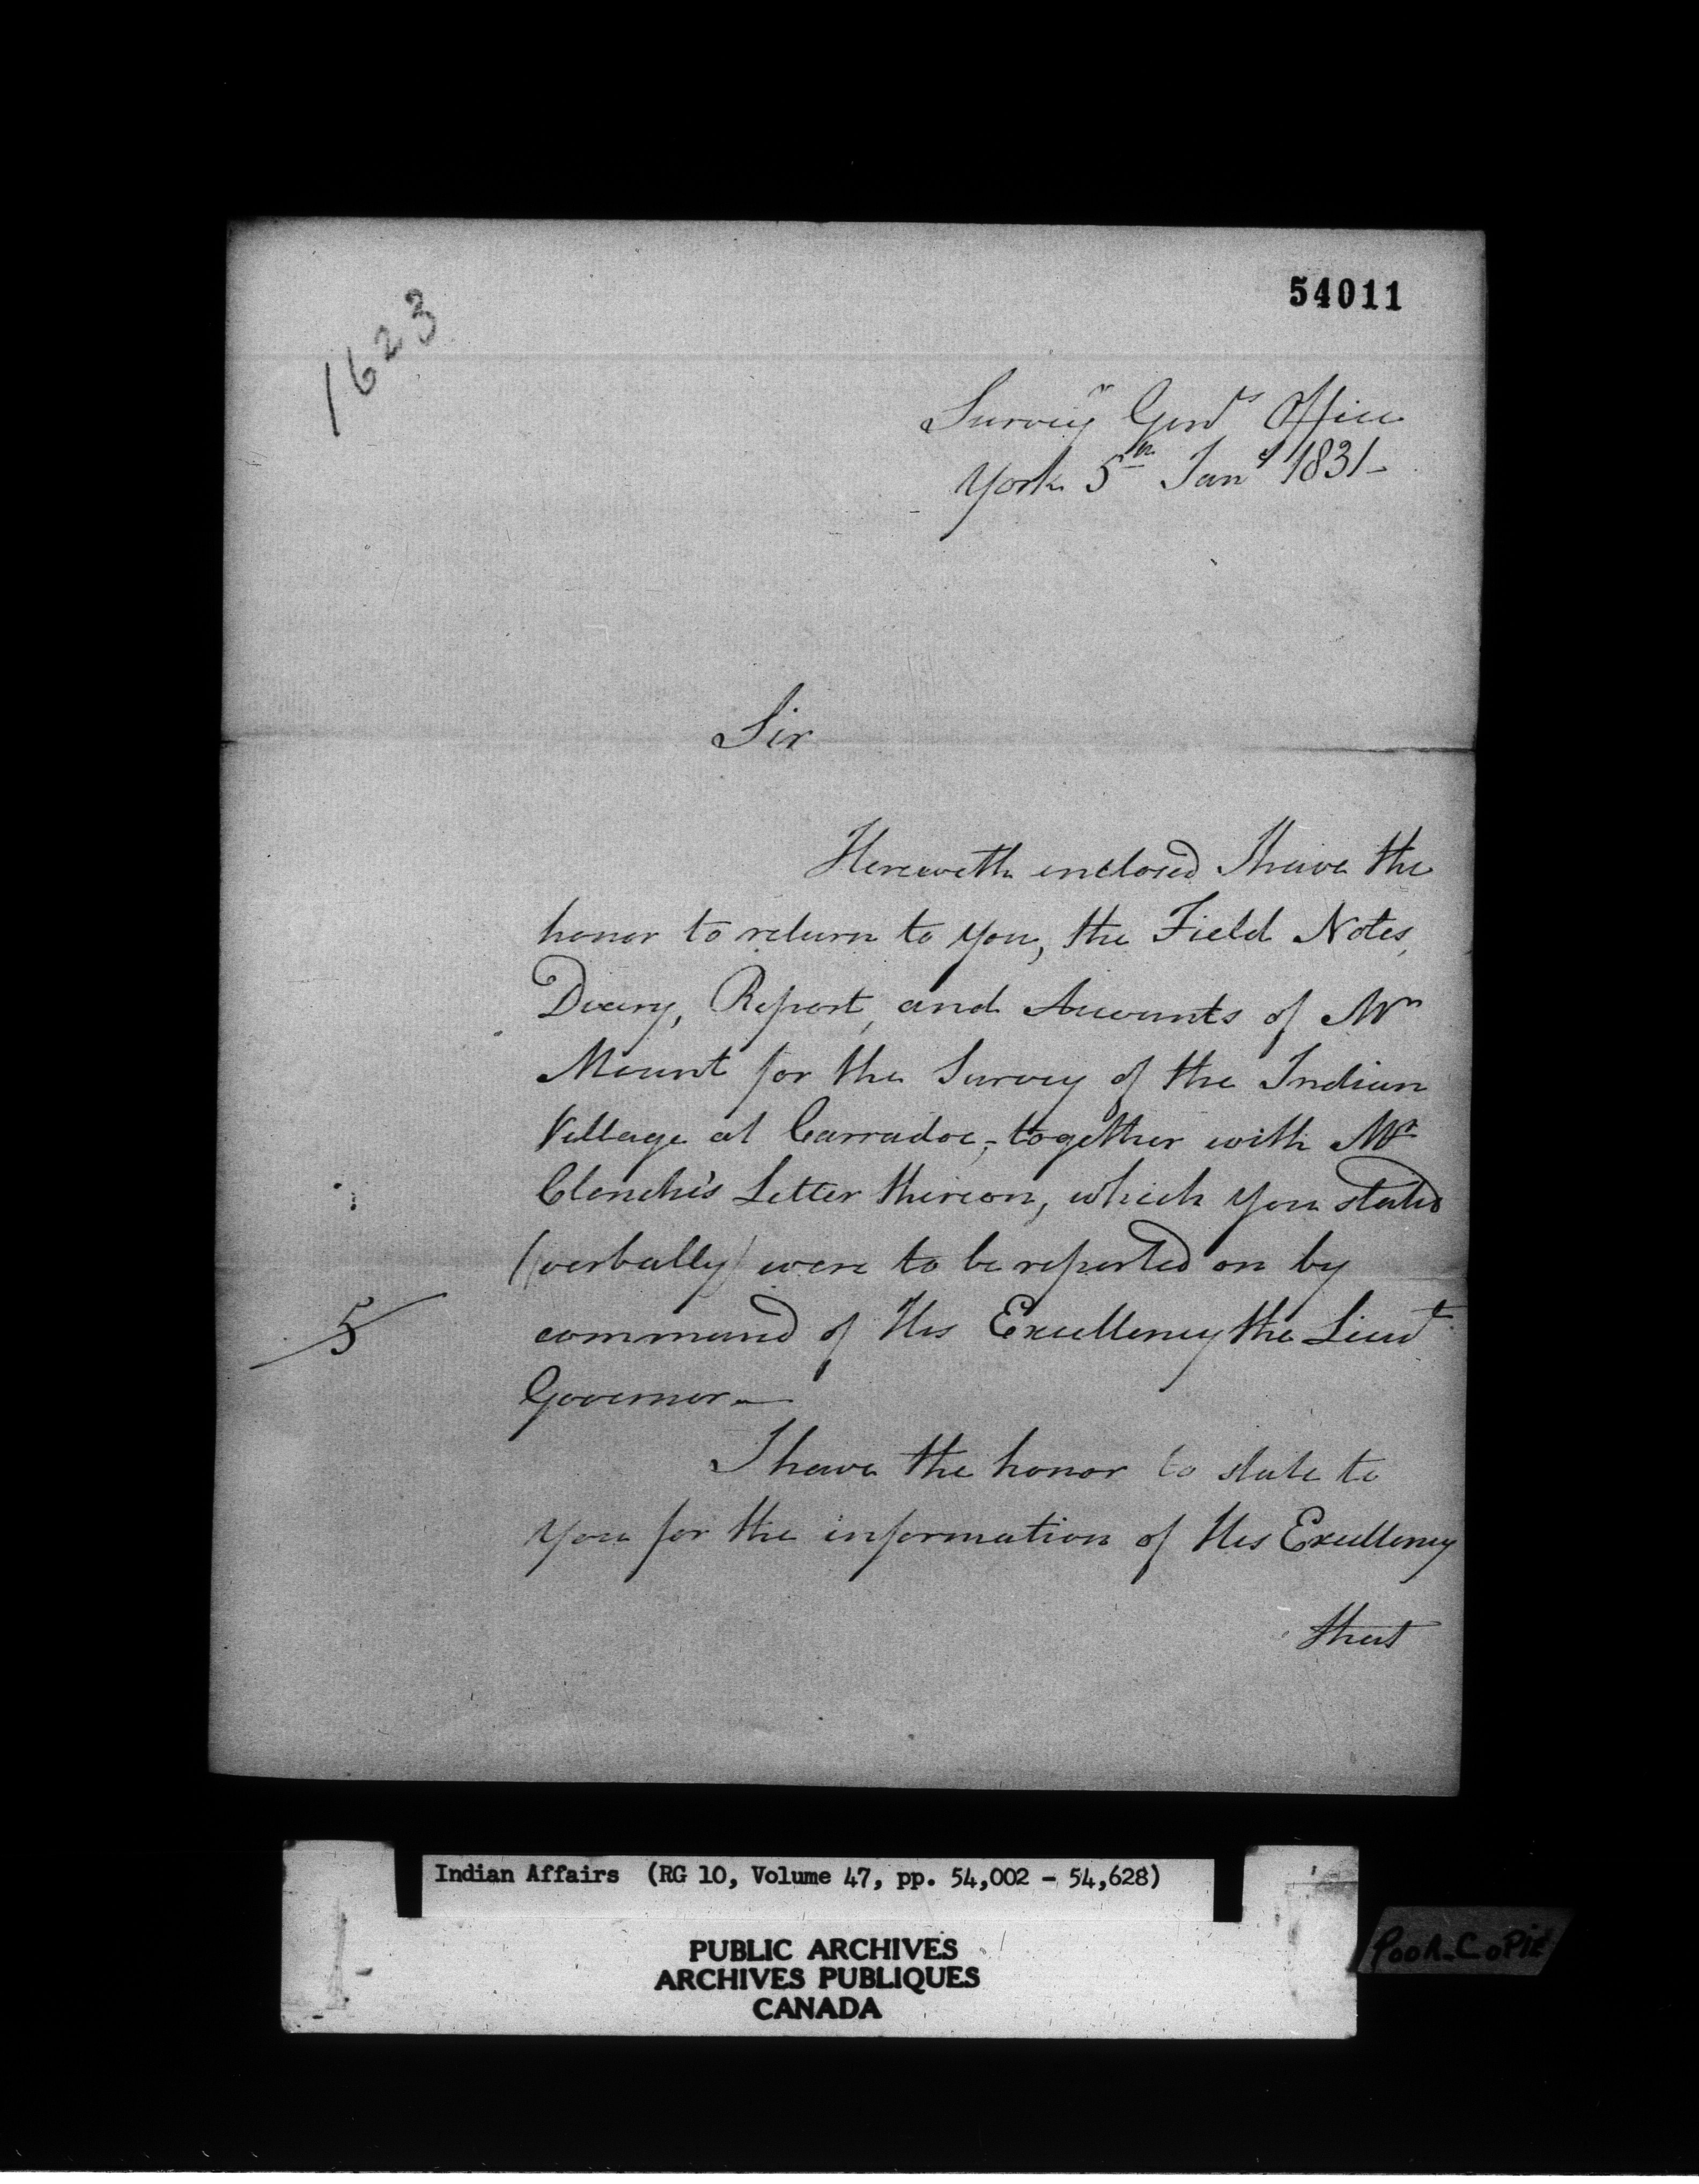 54011
1623
Survey<sup>r</sup> Gen<sup>ls</sup> Office
York 5<sup>th</sup> Jan<sup>y</sup> 1831–
Sir
Herewith enclosed I have the
honor to return to you, the Field Notes,
Diary, Report, and Accounts of M<sup>r</sup>
Mount for the Survey of the Indian
Village at Carradoc, together with M<sup>r</sup>
Clench's Letter thereon, which you stated
(verbally) were to be reported on by
5
command of His Excellency the Lieu<sup>t</sup>
Governor—
I have the honor to state to
you for the information of His Excellency
that
Indian Affairs (RG 10, Volume 47, pp. 54,002 - 54,628)
PUBLIC ARCHIVES
ARCHIVES PUBLIQUES
CANADA
POOR COPIE